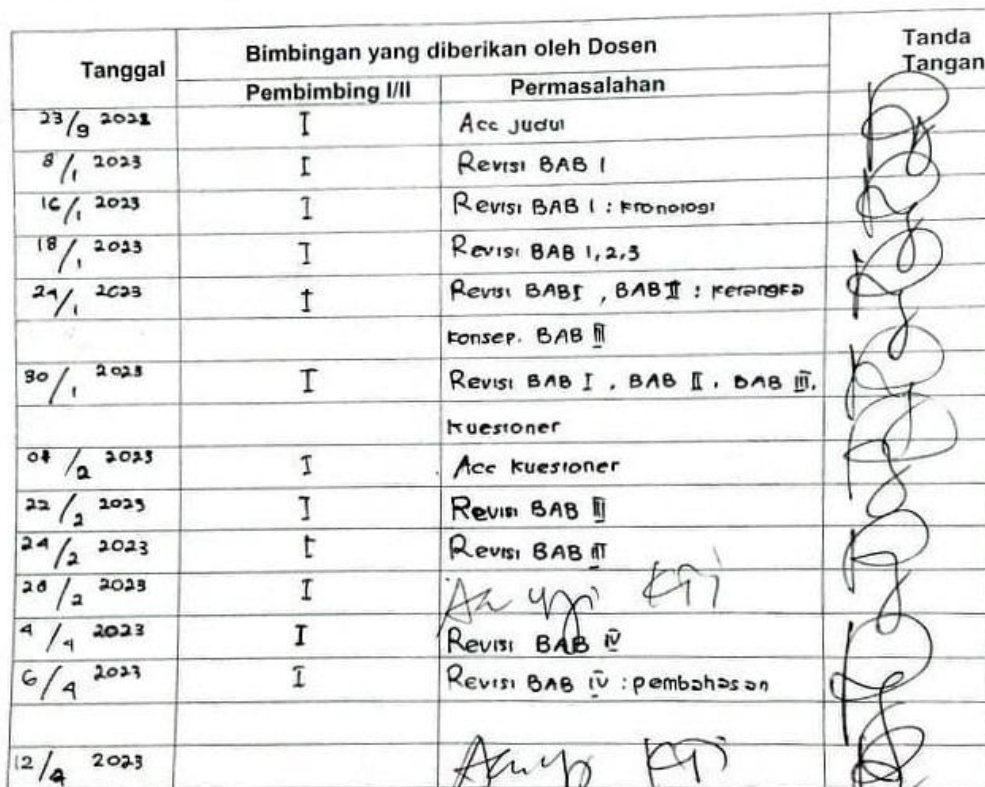 Tanggal
Bimbingan yang diberikan oleh Dosen
Tanda Tangan
Pembimbing I/II
Permasalahan
23/9 2022 I Acc Judul
8/1 2023 I Revisi BAB 1
16/1 2023 I Revisi BAB 1 : kronologi
18/1 2023 I Revisi BAB 1,2,3
24/1 2023 I Revisi BAB I , BAB II : kerangka
konsep. BAB III
30/1 2023 I Revisi BAB I , BAB II , BAB III,
kuesioner
/2 2023 I Acc kuesioner
22/2 2023 I Revisi BAB III
24/2 2023 I Revisi BAB III
28/2 2023 I Acc Uji KTI
4/4 2023 I Revisi BAB IV
6/4 2023 I Revisi BAB IV : pembahasan
12/4 2023 KTI